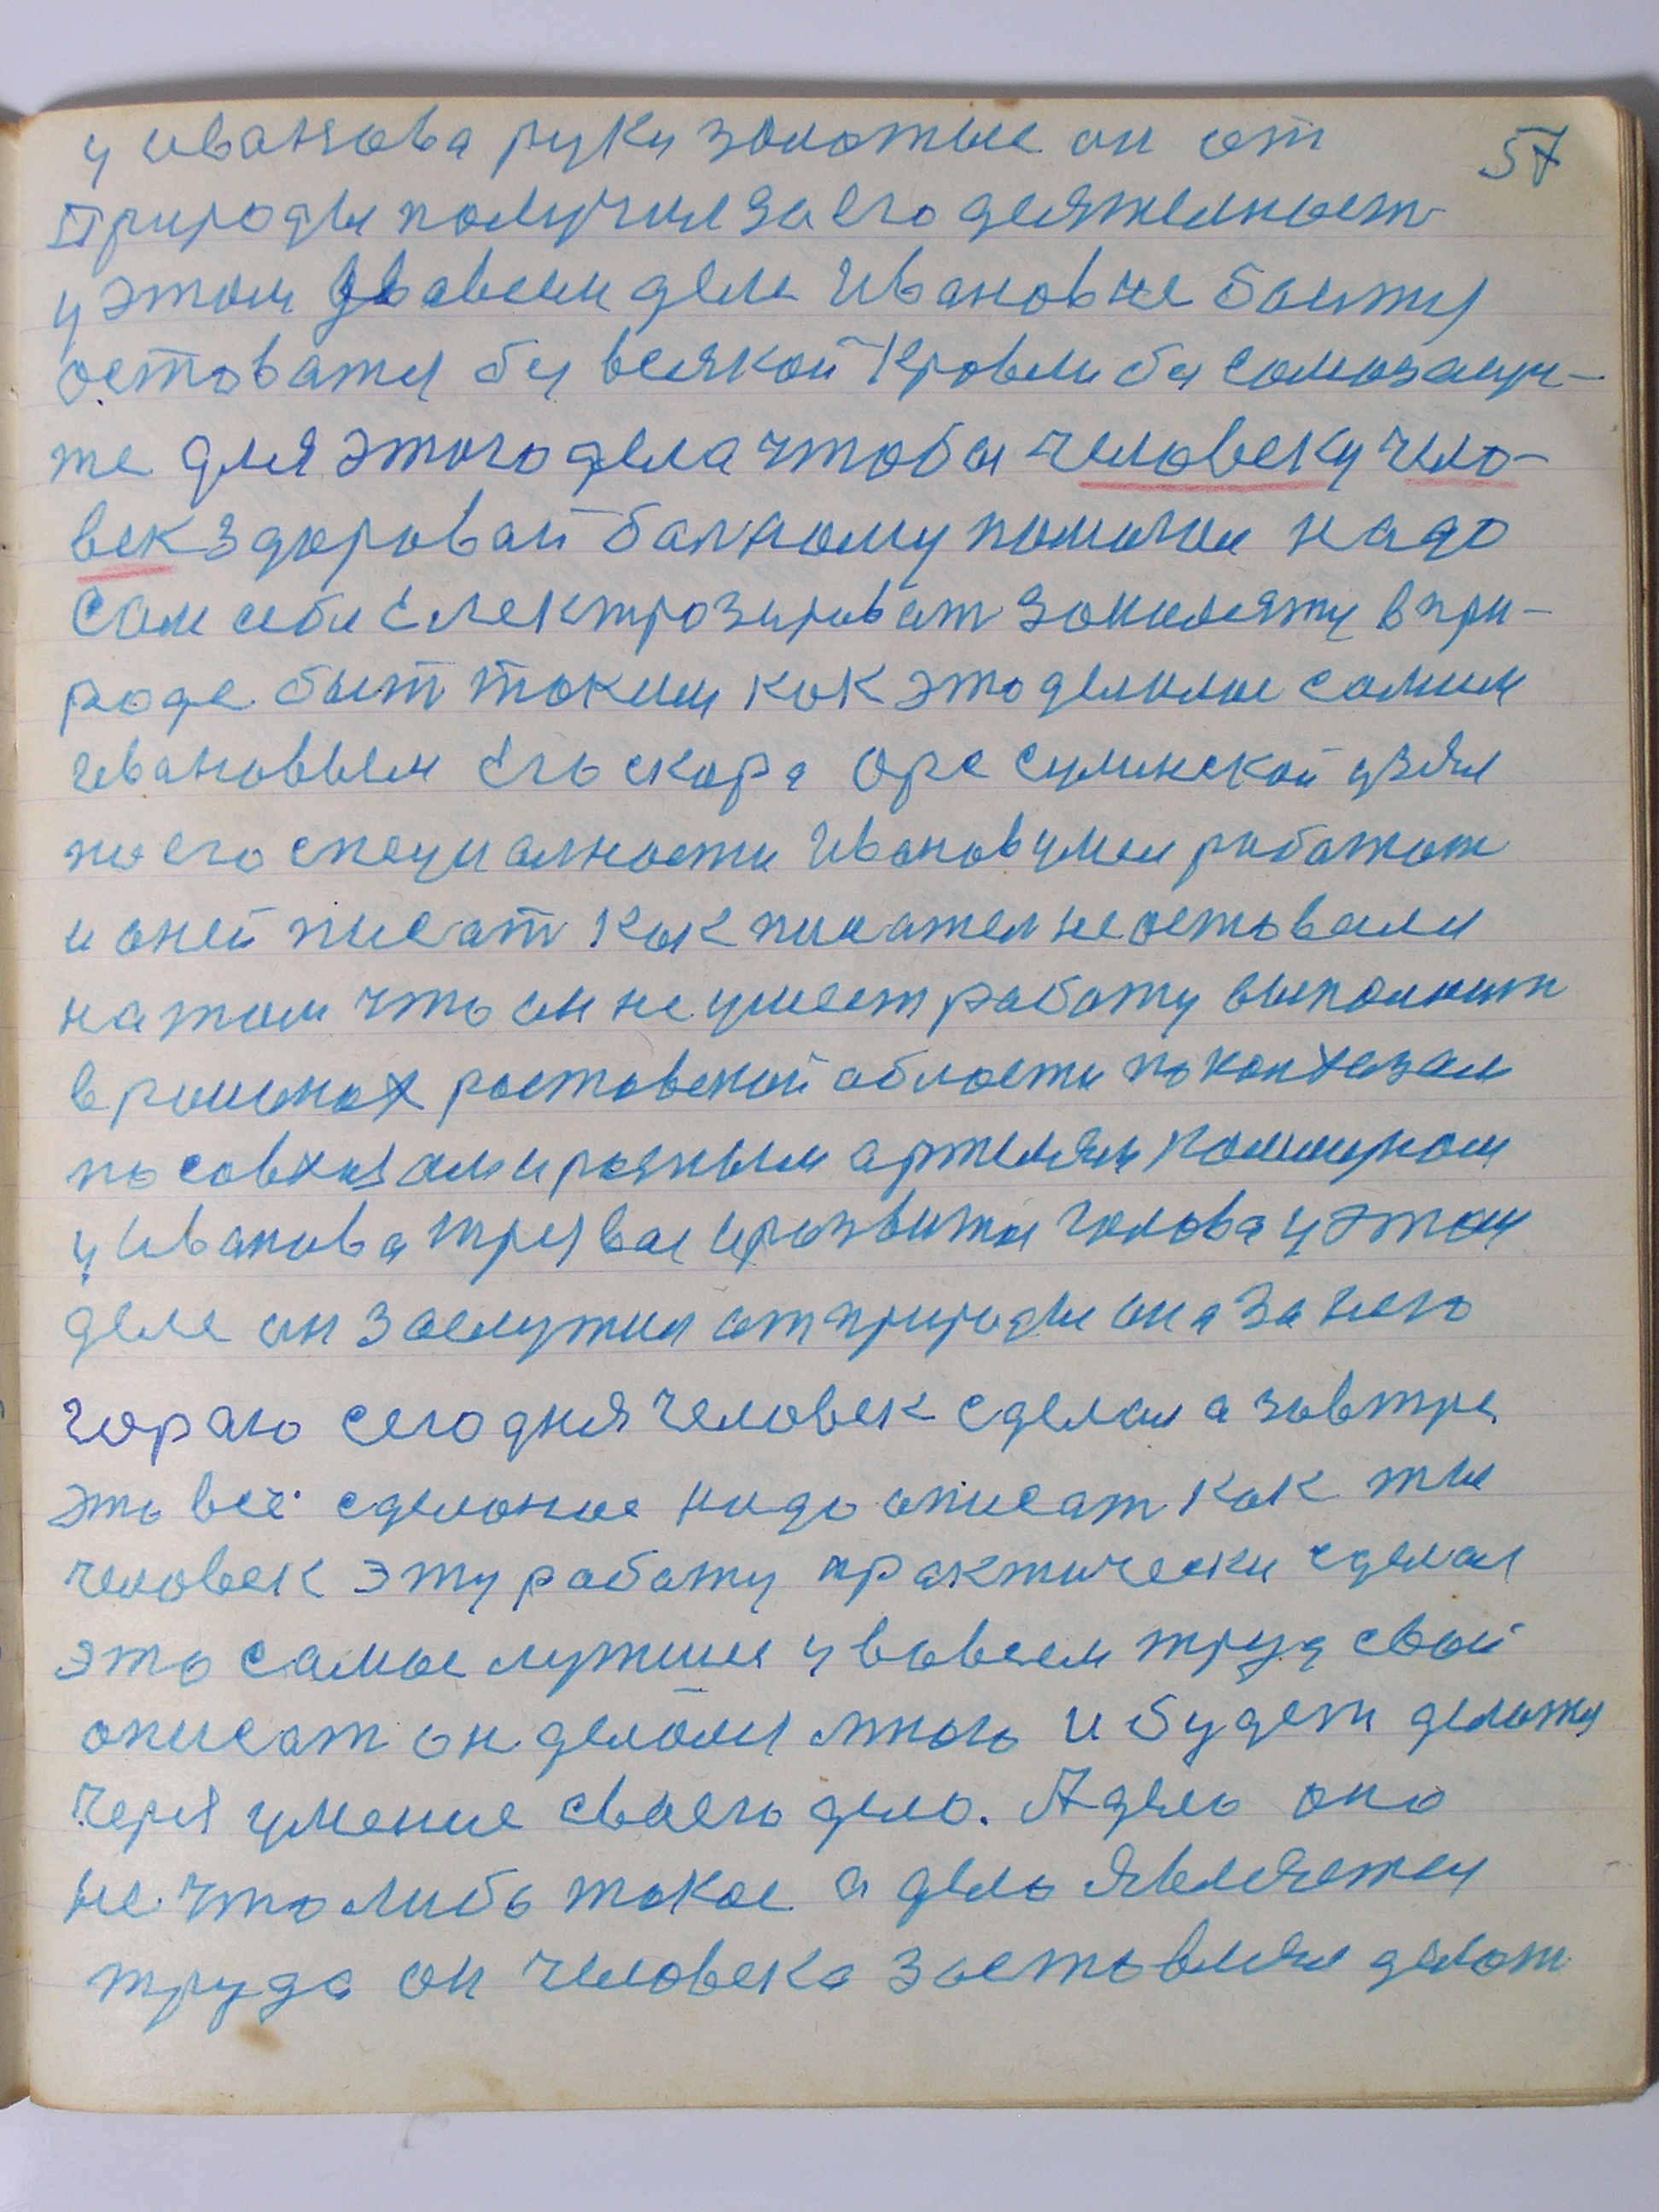 57
у иванова руки золотые он от
природы получил за его деятелност
у этом вовсем деле Иванов не боится
остоватся бы всякой кровли бы самозащи-
те для этого дела чтобы человеку чело-
век здоровай болному помогои надо
сам себя електрозироват заниматя в при-
роде быт таким как это делалос самим
ивановым Его скора орс сулинской узял
по его специалности Иванов умел работат
и оней писат как писател не оставали
на том что он не умеет работу выполнит
в роионах ростовской области по колхозам
по совхозам и розным артелям коммуном
у Иванова трезвая и розвитая голова у этом
деле он заслужил от природы она за него
горою сегодня человек сделал а завтра
это всё сделоное надо описат как ты
человек эту работу практически сделал
это самое лутшие у вовсем труд свой
описат он делолся много и будет делатся
через умение своего дело. А дело оно
не что либо такое а дело является
труда он человека заставлял делат